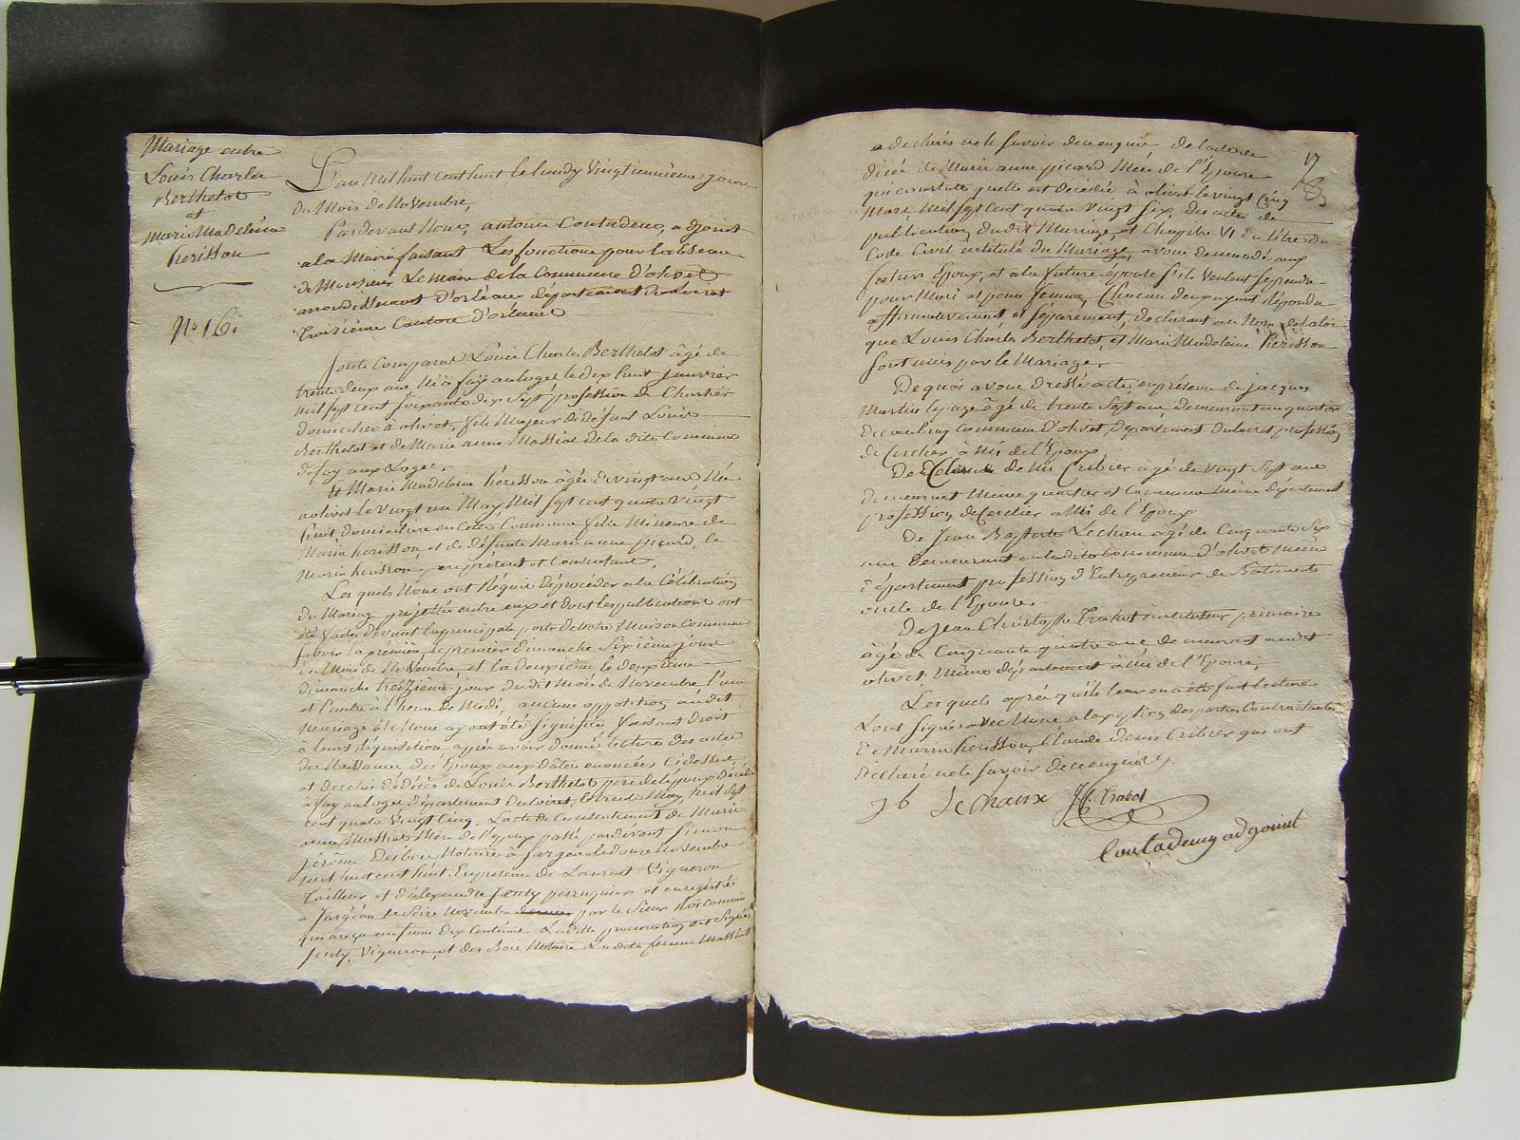 Mariage entre
Louis Charles
Berthelot
et
Marie Madeleine
herisson
N° 16.
L'an Mil huit cent huit le lundy Vingt unième jour
du Mois de Novembre,
Pardevant Nous, antoine Coutadeuc, adjoint
a la Mairie faisant Les fonctions pour l'absence
de Monsieur Le Maire de la Commune d'olivet
arrondissement D'orléans département Du Loiret
troisième Canton d'orleans
Sont Comparus Louis Charles Berthelot âgé de
trente deux ans Né à fay auloges le dix huit janvier
mil sept cent soixante dix Sept profession de Charretier
domicilié à olivet, fils Majeur de défunt Louis
Berthelot et de Marie anne Massiot de la dite Commune
de fay aux Loges.
Et Marie Madelaine hérisson âgée de vingt ans Née
a olivet le vingt un May Mil sept cent quatre vingt
huit, domiciliée en cette Commune fille Mineure de
Marin herisson, et de défunte Marie anne picard, le
Marin herisson, présent et Consentant,
Les quels Nous ont Requis de procéder a la Célébration
du Mariage projetté entre eux et dont les publications ont
été faites devant la principale porte de Notre Maison Commune
Savoir la première, le premier Dimanche Sixième jour
du Mois de Novembre, et la deuxième le deuxième
Dimanche treizième jour du dit Mois de Novembre l'une
et l'autre à l'heure de Midi, aucune opposition au dit
Mariage Ne Nous ayant été Signifiée faisant droit
à leurs Réquisition, après avoir donné lecture des actes
de Naissance des Epoux aux dates enoncées Cidessus,
et de celui de décès de Louis Berthelot pere de l'epoux décédé
à fay auloges département du Loiret, le treize May, mil sept
cent quatre Vingt Cinq. L'acte de Consentement de Marie
anne Massiot Mère de l'epoux passé pardevant
jérome Desbois Notaire à Jargeau le douze Novembre
mil huit cent huit En présence de Laurent Vigneron
Tailleur et d'alexandre Jenty perruquier et enregistré
a Jargeau le Seize Novembre par le Sieur
qui a reçu un franc dix Centimes. La dite procuration est Signée
Jenty, Vigneron, et des Bois Notaire La dite femme Massiot
a déclarée ne le Savoir de ce enquise. de l'acte de
décès de Marie anne picard Mère de l'Epouse
qui constate qu'elle est décédée à olivet le vingt Cinq
Mars Mil sept cent quatre vingt six, des actes de
publication du dit Mariage, et Chapitre VI du titre du
Code Civil intitulé du Mariage, avons demandé aux
futurs Epoux, et a la future épouse s'ils veulent se prendre
pour Mari et pour femme, Chacun d'eux ayant répondu
affirmativement et séparement, declarant au Nom de la loi
que Louis Charles Berthelot, et Marie Madelaine herisson
sont unis par le Mariage.
De quoi avons Dressé acte en présence de jacques
Martin lepage âgé de trente Sept ans demeurant au quartier
de Commune d'olivet, Département du Loiret, profession
de Cerclier à Mi de l'Epoux.
De Claude de nis Cribier agé de vingt Sept ans
demeurant Même quartier et Commune Même département
profession de Cerclier a Mi de l'Epoux
De Jean Baptiste Lechau agé de Cinquante Six
ans Demeurant en la dite Commune d'olivet Même
département profession d'Entrepreneur de Batiments
oncle de l'Epouse.
De Jean Christophe Trabot instituteur primaire
âgé de Cinquante quatre ans demeurant au dit
olivet, Même département à Mi de l'Epouse,
Les quels après qu'ils leur en a été fait lecture
L'ont Signé avec Nous a l'exception des parties Contractantes
de Marin herisson, Claude denis Cribier qui ont
déclaré ne le Savoir de ce enquis.
J b Lechaux J.C. Trabot
Coutadeuc adjoint